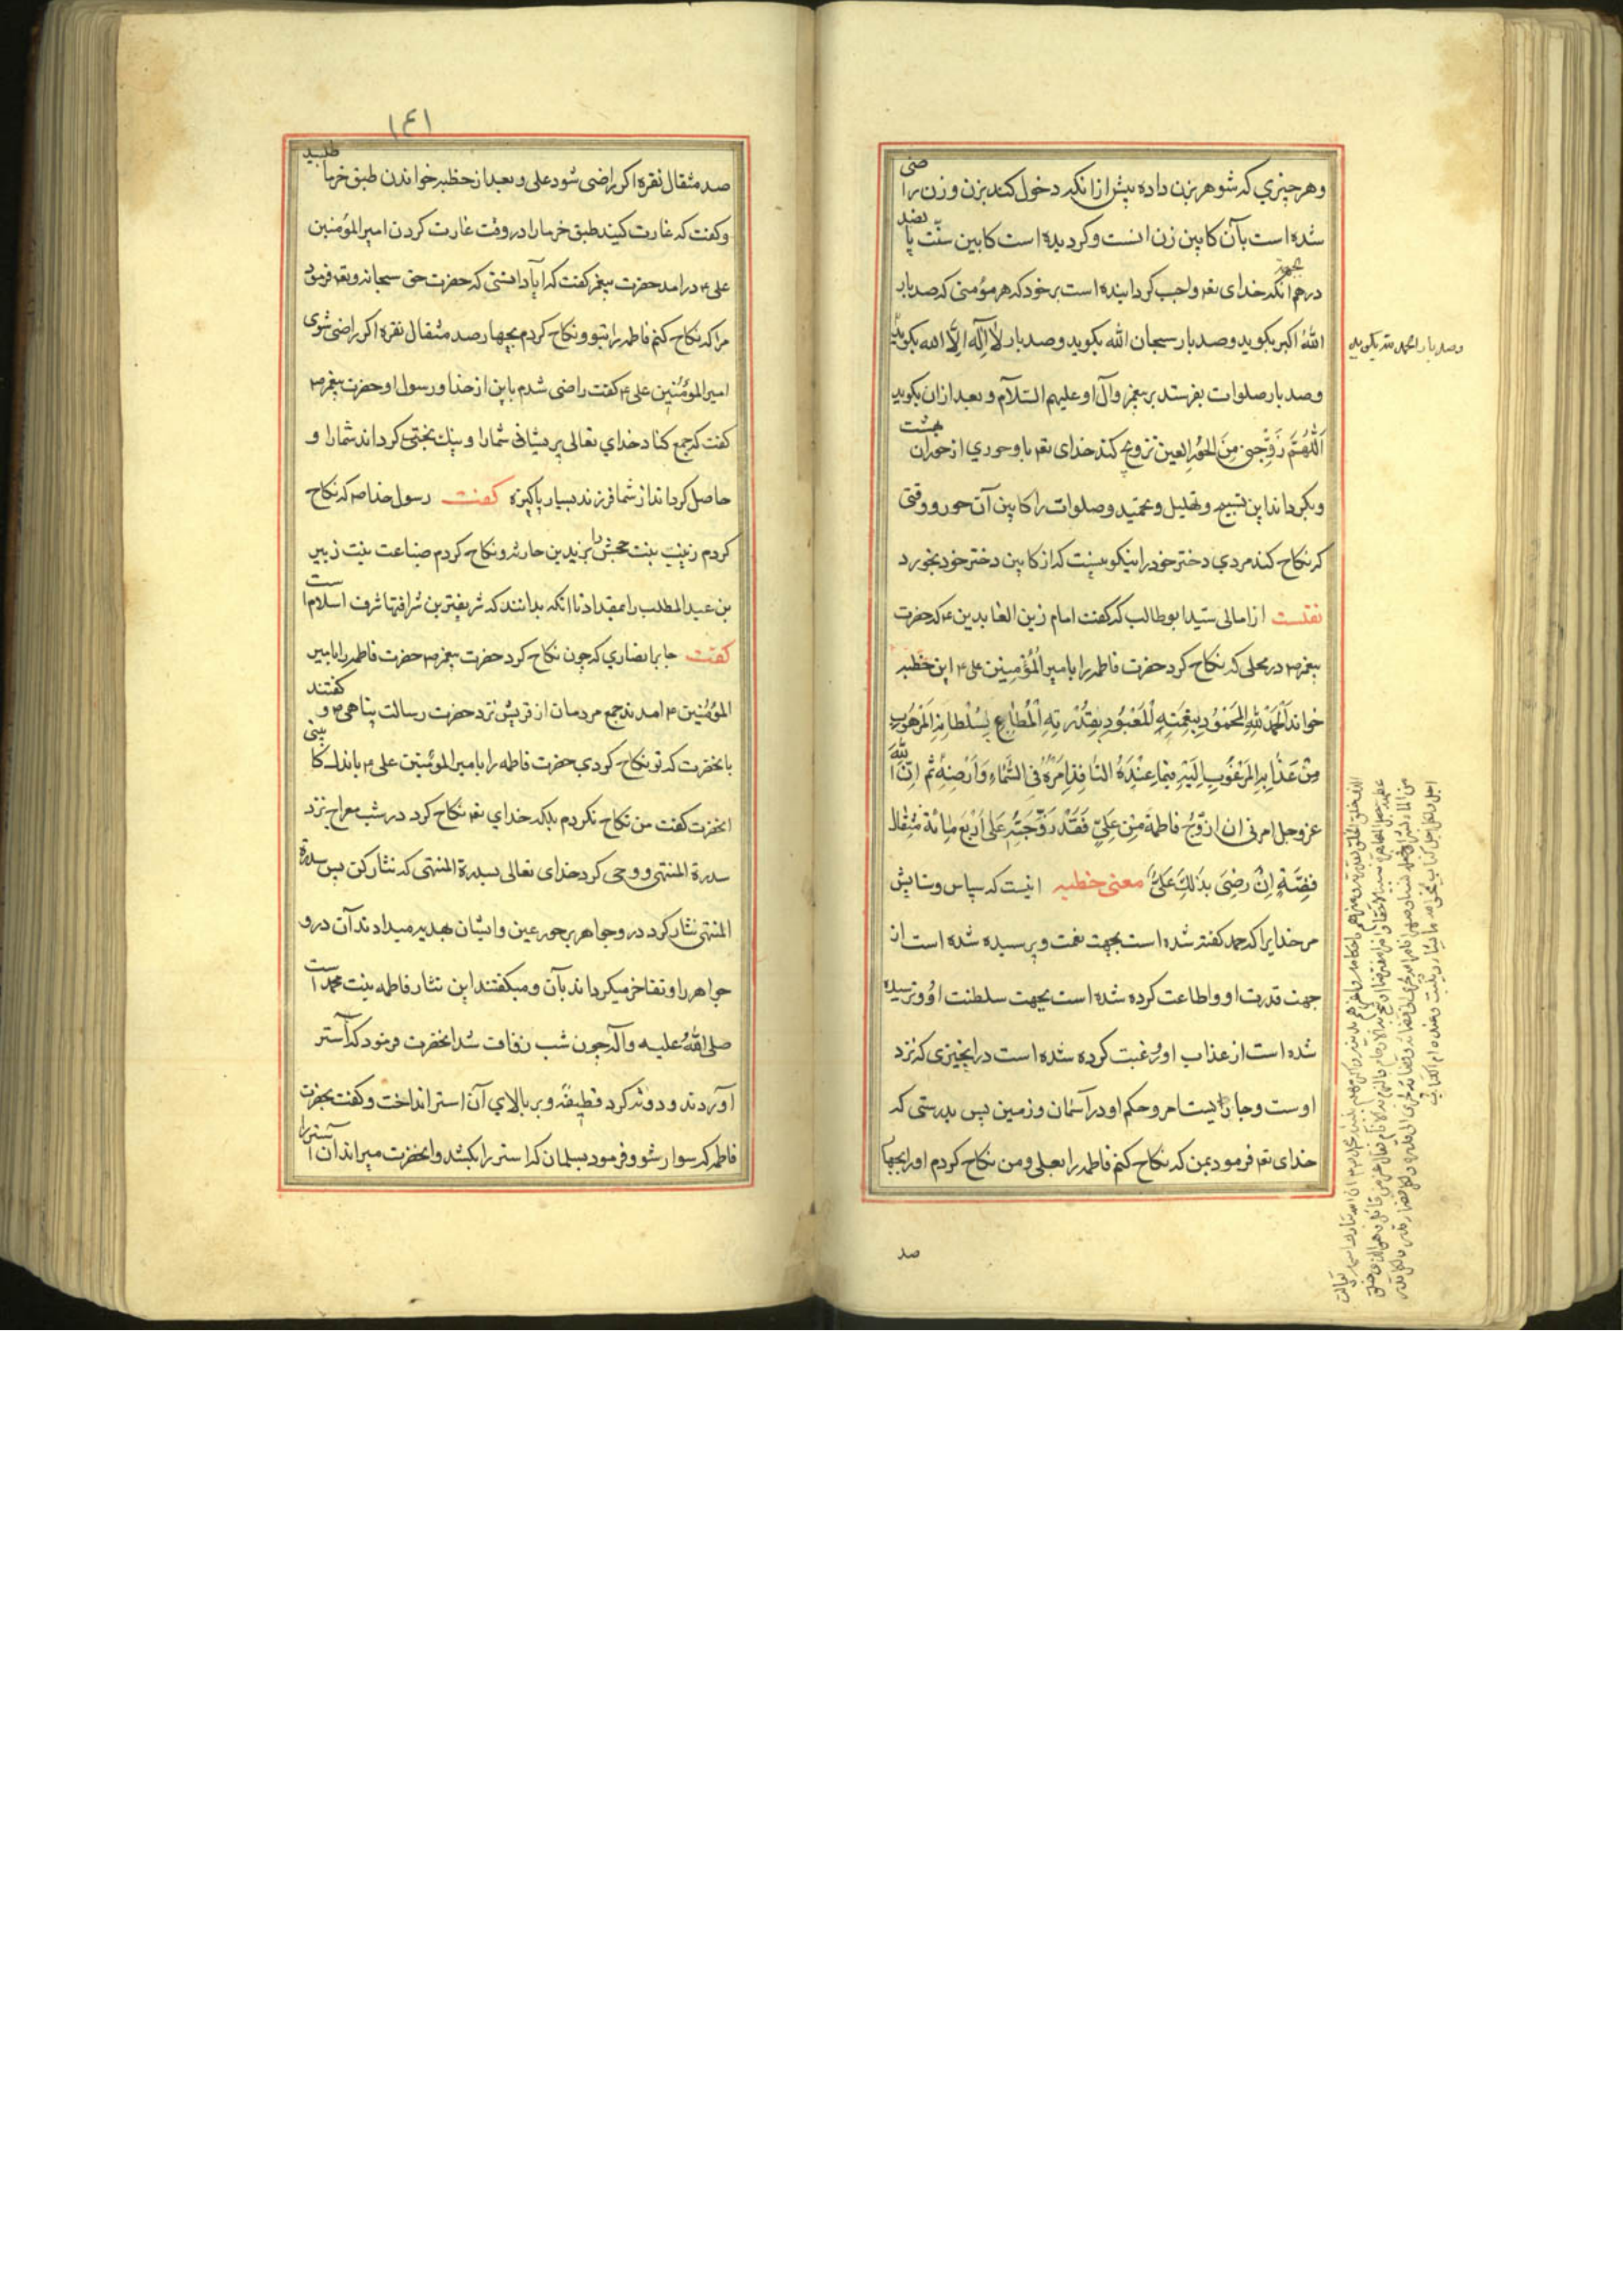 وهر چیزي که شوهر بزن داده پیش از انکه دخول کند بزن وزن راضی
شده است بآن کابین زن انست وکردیده است کابین سنّت پانصد
درهم بجهة انکه خدای تعه واجب کردانیده است بر خود که هر مؤمنی که صد بار
اللهُ اکبر بکوید وصد بار سبحان الله بکوید وصد بار لا اِله الّا الله بکوید
وصد بار الحمد لله بکوید
وصد بار صلوات بفرستد بر پیغمبر وآل او علیهم السّلام وبعد از ان بکوید
اَللّهُمَّ زَوِّجنی مِنَ الحُورِ العین تزویج کند خدای تعه باو حوري از حوران بهشت
وبکرداند این تسبیح وتهلیل وتحمید وصلوات را کابین آن حور ووقتی
که نکاح کند مردي دختر خود را نیکو نیست که از کابین دختر خود بخورد
نقلست از امالی سیّد ابوطالب که کفت امام زین العابدین ع که حضرت
پیغمبر ص در محلی که نکاح کرد حضرت فاطمه را با میر المُؤمِنین علی ع این خطبه
خواند اَلحَمدُ لِلّهِ المَحمُودِ بِنِعمَتِهِ المَعبُودِ بِقُدرَتِهِ المُطاعِ بِسُلطانِهِ المَرهُوبِ
مِن عَذابِهِ المَرغُوبِ اِلَیهِ فیما عِندَهُ النّافِذِ اَمرُهُ فی السَّماءِ وَاَرضِهِ ثُمَّ اِنَّ اللّهَ
عز وجل امرنی ان ازوّج فاطمة مِن عَلِیّ فَقَد زَوَّجتُهُ عَلی اَربَعَ مِائَة مثقال
فِضَّةٍ اِن رَضِیَ بِذلِكَ عَلِیٌّ معنی خطبه اینست که سپاس وستایش
مر خدایرا که حمد کفته شده است بجهت نعمت وپرسیده شده است از
جهت قدرت او واطاعت کرده شده است بجهت سلطنت او وترسیده
شده است از عذاب او ورغبت کرده شده است در انچیزی که نزد
اوست وجاریست امر وحکم او در آسمان وزمین پس بدرستی که
خدای تعه فرمود بمن که نکاح کنم فاطمه را بعلی ومن نکاح کردم اورا بچهار
صد
١٤١
صد مثقال نقره اکر راضی شود علی وبعد از خطبه خواندن طبق خرما طلبید
وکفت که غارت کنید طبق خرما را در وقت غارت کردن امیر المؤمنین
علی ع در امد حضرت پیغمبر کفت که ایا دانستی که حضرت حق سبحانه وتعه فرمود
مرا که نکاح کنم فاطمه را بتو ونکاح کردم بچهار صد مثقال نقره اکر راضی شوی
امیر المؤمنین علی ع کفت راضی شدم باین از خدا ورسول او حضرت پیغمبر ص
کفت که جمع کناد خداي تعالی پریشانی شمارا ونیك بختی کرداند شمارا و
حاصل کرداند از شما فرزند بسیار پاکیزه کفت رسول خدا ص که نکاح
کردم زینب بنت جحش را بزید بن حارثه ونکاح کردم ضباعت بنت زبیر
بن عبد المطلب را بمقداد تا انکه بدانند که شریفترین شرافتها شرف اسلام است
کفت جابر انصاري که چون نکاح کرد حضرت پیغمبر ص حضرت فاطمه را بامیر
المؤمنین ع امدند جمع مردمان از قریش نزد حضرت رسالت پناهی ص وکفتند
بانحضرت که تو نکاح کردي حضرت فاطمه را بامیر المؤمنین علی ع باندك کابینی
انحضرت کفت من نکاح نکردم بلکه خداي تعه نکاح کرد در شب معراج نزد
سدرة المنتهی ووحی کرد خدای تعالی بسدرة المنتهی که نثار کن پس سدرة
المنتهی نثار کرد در وجواهر بر حور عین وایشان بهدیه میدادند آن در و
جواهر را وتفاخر میکرداند بآن ومیکفتند این نثار فاطمه بنت محمد است
صلی اللهُ علیه وآله چون شب زفاف شد انحضرت فرمود که استر
آوردند ودوته کرد قطیفهٔ وبر بالاي آن استر انداخت وکفت بحضرت
فاطمه که سوار شو وفرمود بسلمان که استر را بکشد وانحضرت میراند ان استر را